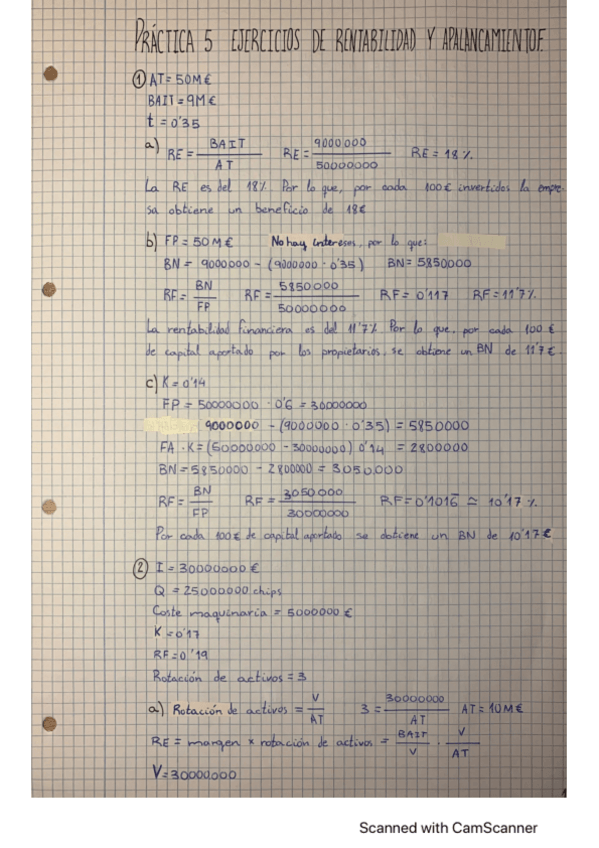 PRÁCTICA 5 EJERCICIOS DE RENTABILIDAD Y APALANCAMIENTO F.
① AT = 50M€
BAIT = 9M€
t = 0'35
a) RE = BAIT / AT RE = 9000000 / 50000000 RE = 18%
La RE es del 18%. Por lo que, por cada 100€ invertidos la empre-
sa obtiene un beneficio de 18€
b) FP = 50M€ No hay intereses, por lo que:
BN = 9000000 - (9000000 · 0'35) BN = 5850000
RF = BN / FP RF = 5850000 / 50000000 RF = 0'117 RF = 11'7%
La rentabilidad financiera es del 11'7%. Por lo que, por cada 100 €
de capital aportado por los propietarios, se obtiene un BN de 11'7€
c) K = 0'14
FP = 50000000 · 0'6 = 30000000
9000000 - (9000000 · 0'35) = 5850000
FA · K = (50000000 - 30000000) 0'14 = 2800000
BN = 5850000 - 2800000 = 3050000
RF = BN / FP RF = 3050000 / 30000000 RF = 0'1016 ≃ 10'17 %
Por cada 100€ de capital aportado se obtiene un BN de 10'17€
② I = 30000000 €
Q = 25000000 chips
Coste maquinaria = 5000000 €
K = 0'17
RF = 0'19
Rotación de activos = 3
a) Rotación de activos = V / AT 3 = 30000000 / AT AT = 10M€
RE = margen x rotación de activos = BAIT / V · V / AT
V = 30000000
Scanned with CamScanner